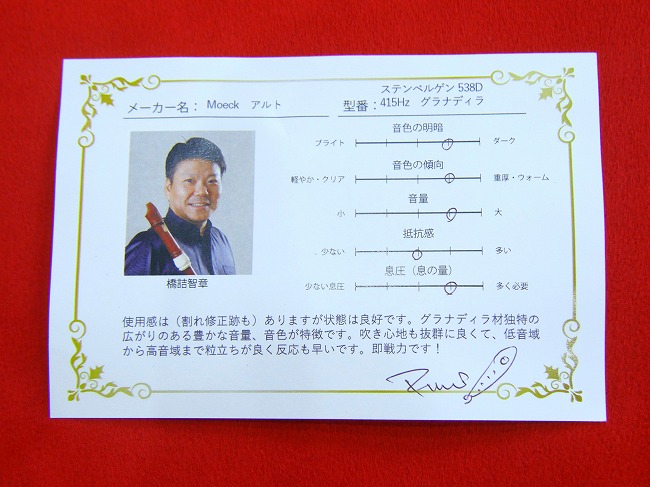 メーカー名： Moeck アルト
型番： ステンベルゲン 538D
415Hz グラナディラ
音色の明暗
ブライト ダーク
音色の傾向
軽やか・クリア 重厚・ウォーム
音量
小 大
抵抗感
少ない 多い
息圧（息の量）
少ない息圧 多く必要
橋詰智章
使用感は（割れ修正跡も）ありますが状態は良好です。グラナディラ材独特の
広がりのある豊かな音量、音色が特徴です。吹き心地も抜群に良くて、低音域
から高音域まで粒立ちが良く反応も早いです。即戦力です！